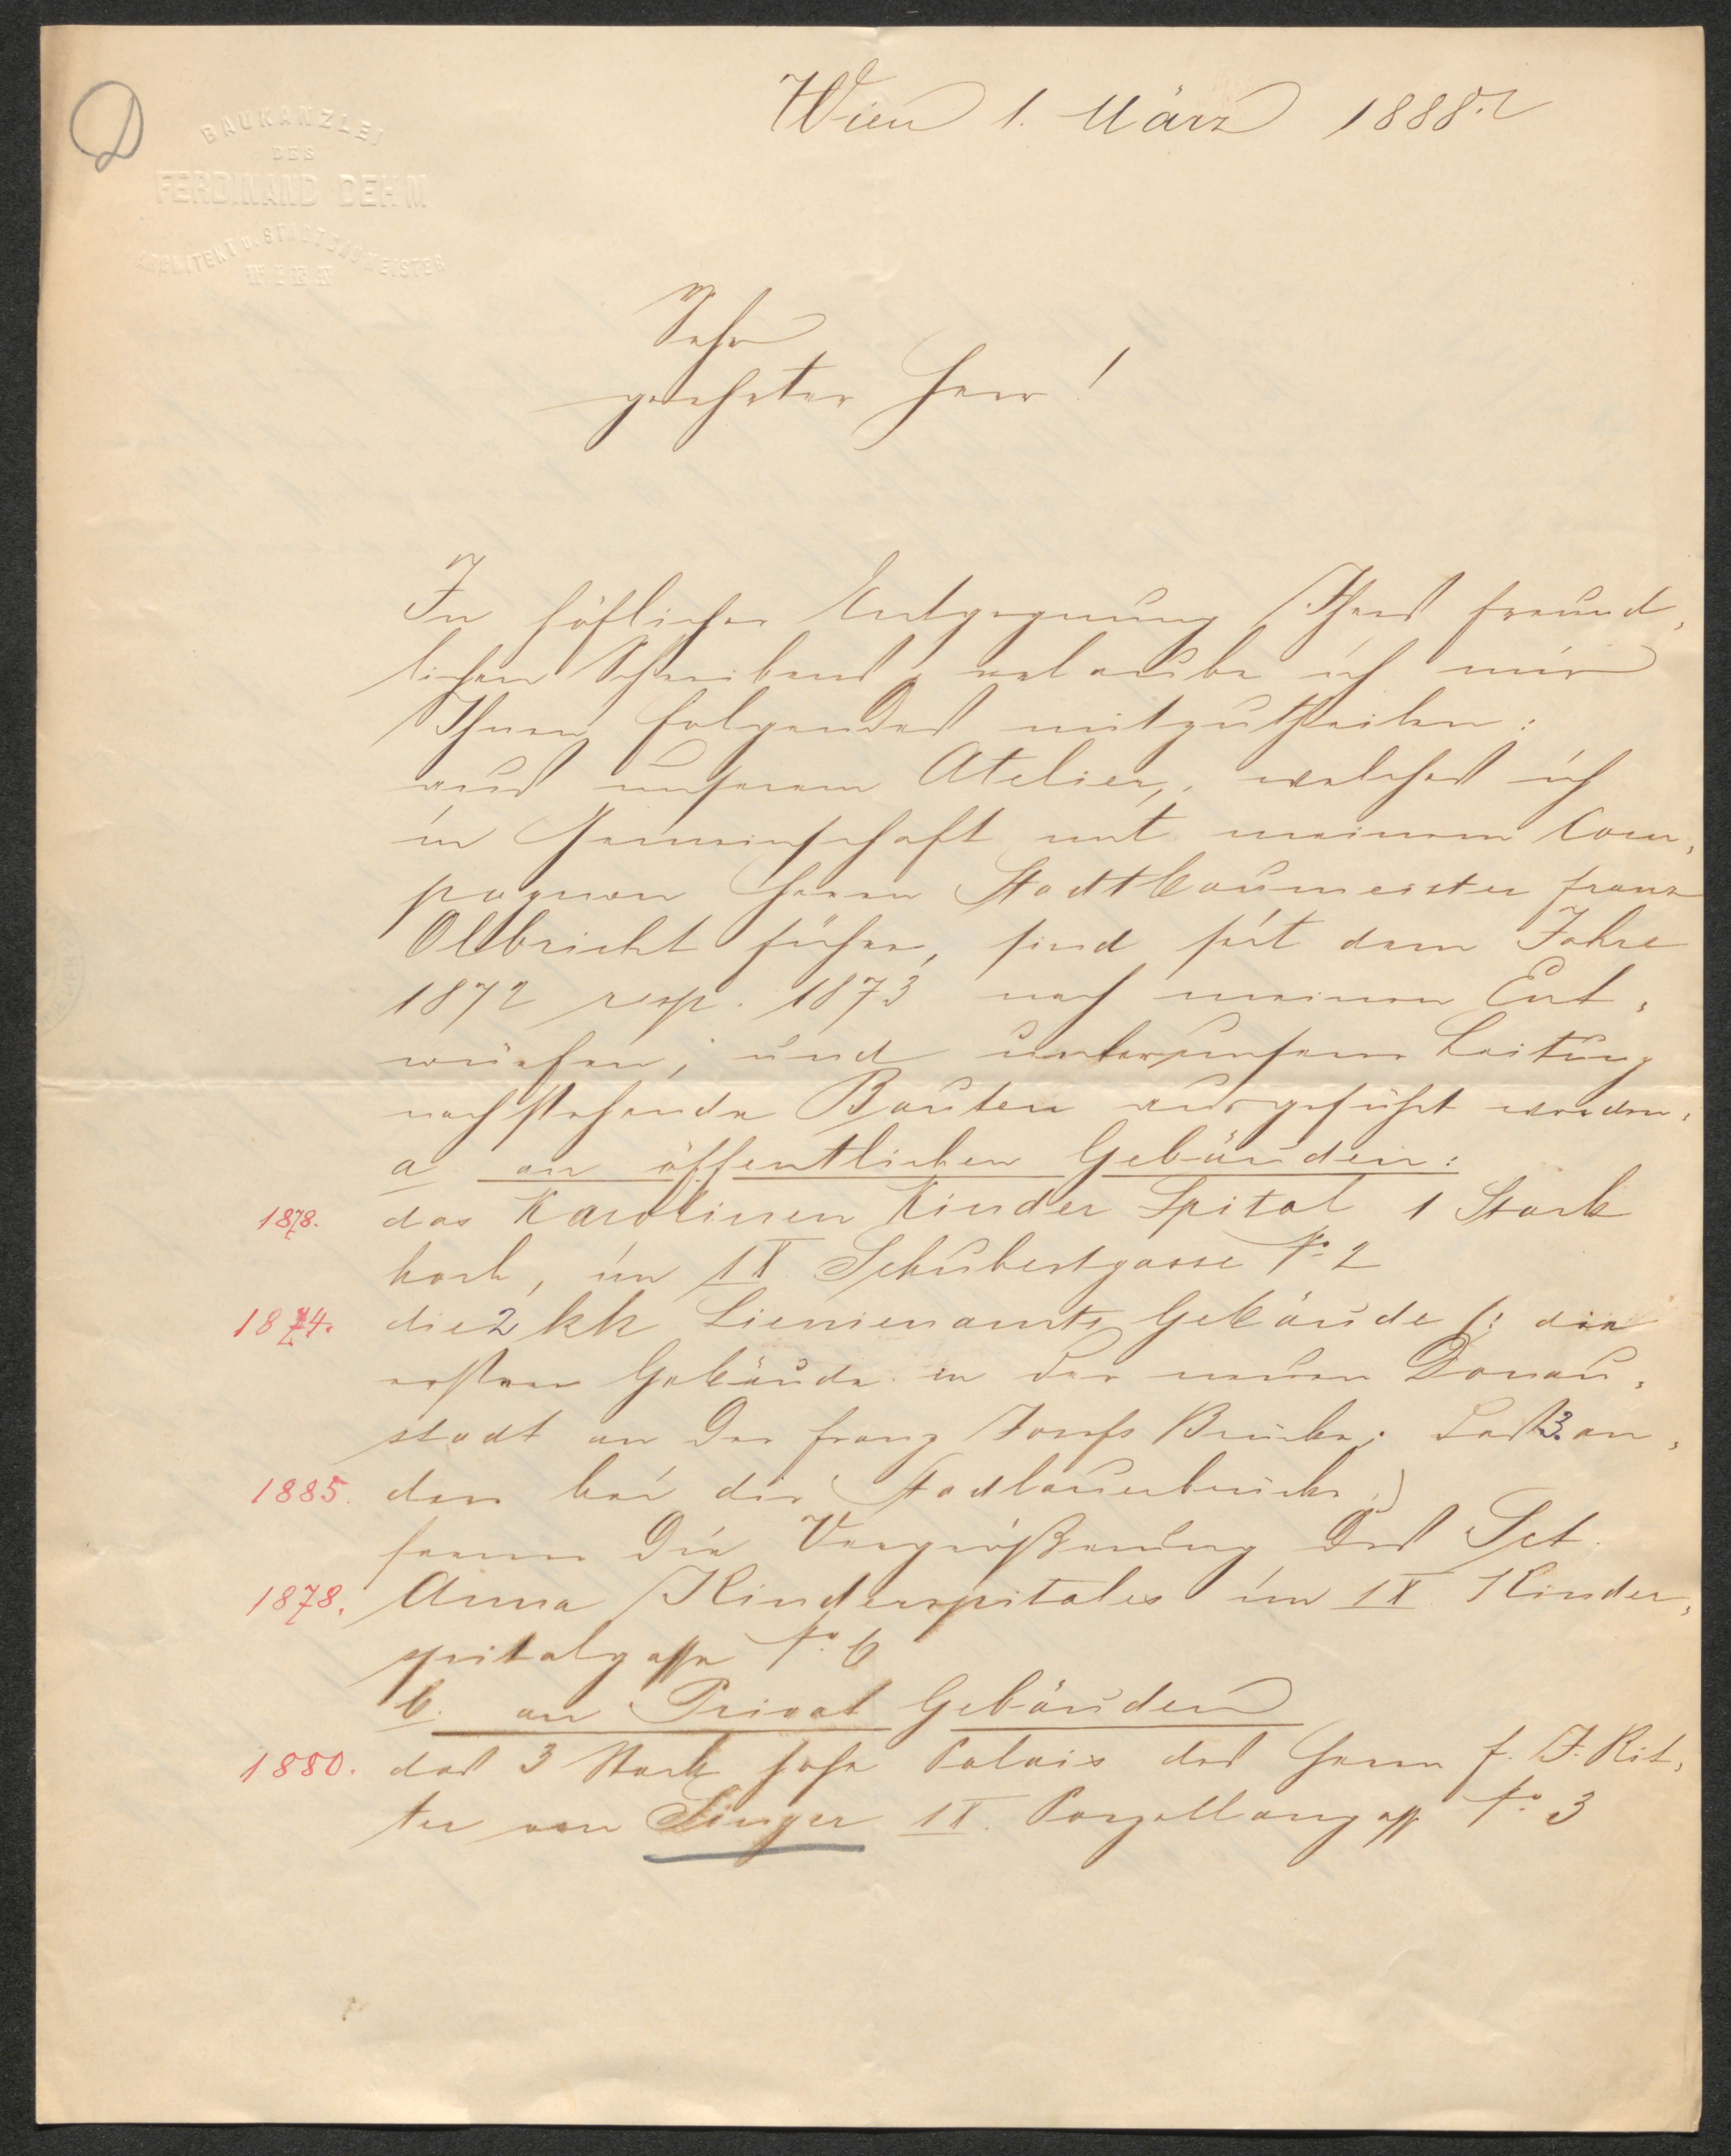 D
BAUKANZLEI
DES
FERDINAND DEHM
ARCHITEKT U. STADTBAUMEISTER
WIEN
Wien 1. März 1888.
Sehr
geehrter Herr!
In höflicher Entgegnung Ihres freund,
lichen Schreibens, erlaube ich mir
Ihnen folgendes mitzutheilen:
aus unserem Atelier, welches ich
in Gemeinschaft mit meinem Com,
pagnon Herrn Stadtbaumeister Franz
Olbricht führe, sind seit dem Jahre
1872 resp. 1873 nach meinen Ent,
würfen, und unter unserer Leitung
nachstehende Bauten ausgeführt worden.
a an öffentlichen Gebäuden:
1878. das Karolinen Kinder Spital 1 Stock
hoch, im IX Schubertgasse No 2
1874. die 2 kk Linienamts Gebäude (: die
ersten Gebäude in der neuen Donau,
stadt an der Franz Josefs Brücke; das 3. an,
1885. dere bei der Stadlauerbrücke,)
ferner die Vergrößerung des Sct.
1878. Anna Kinderspitales im IX Kinder,
spitalgasse No. 6
b. an Privat Gebäuden
1880. das 3 Stock hohe Palais des Herrn F. J. Rit,
ter von Singer IX. Porzellangasse No. 3